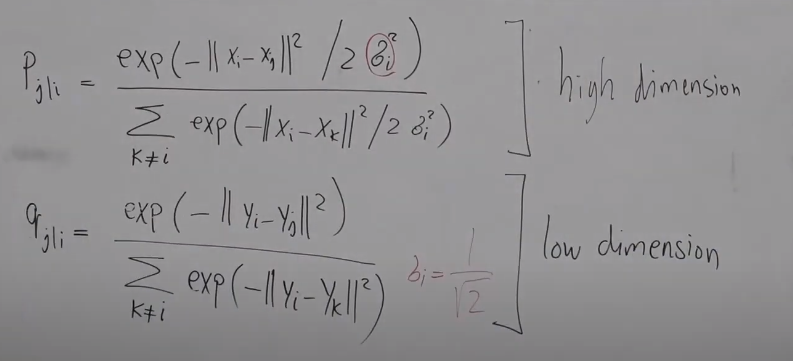 P_{j|i} = exp(-‖x_i-x_j‖² / 2 σ_i²) / Σ_{K≠i} exp(-‖x_i-x_K‖²/2 σ_i²) ] high dimension
q_{j|i} = exp(-‖y_i-y_j‖²) / Σ_{K≠i} exp(-‖y_i-y_K‖²) σ_i = 1/√2 ] low dimension